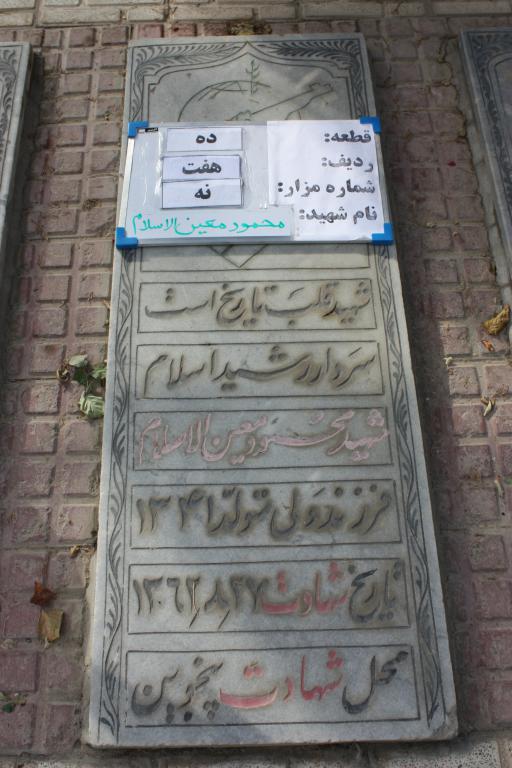 قطعه: ده
ردیف: هفت
شماره مزار: نه
نام شهید: محمود معین الاسلام
شهید قلب تاریخ است
سردار رشید اسلام
شهید محمود معین الاسلام
فرزند ولی تولد ۱۳۴۱
تاریخ شهادت ۱۳۶۲٫۸٫۲۷
محل شهادت پنجوین